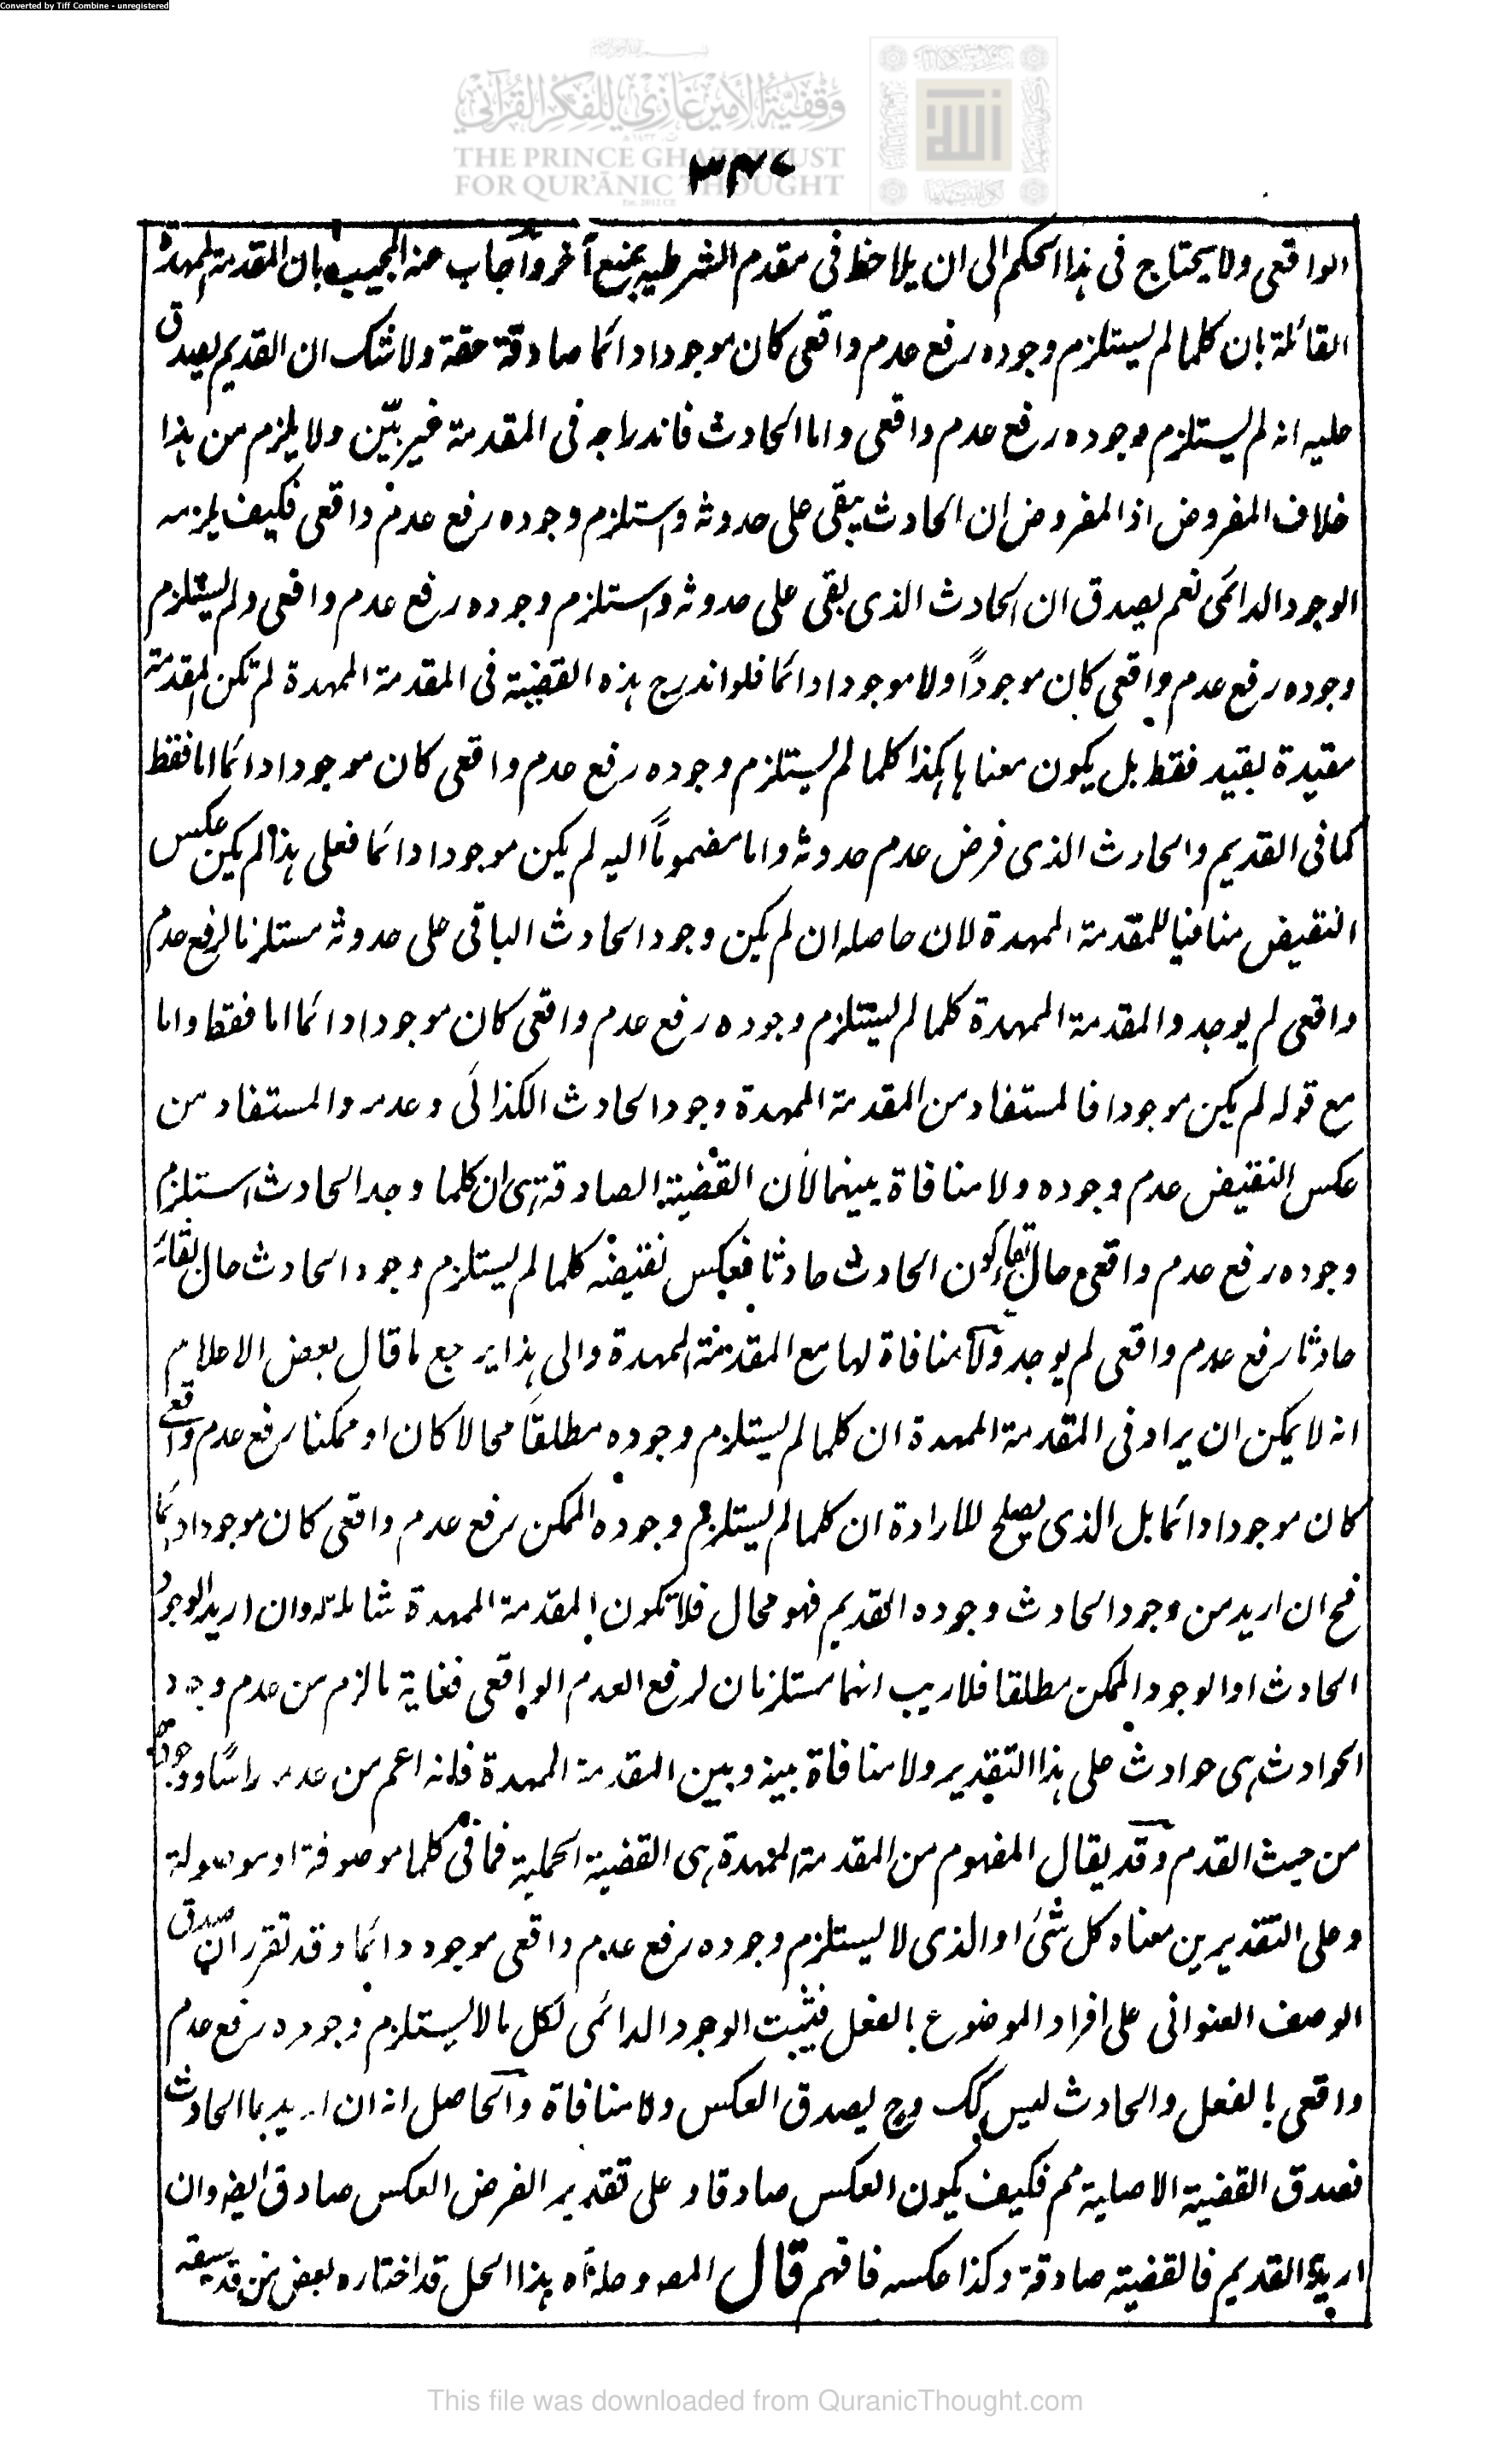 Converted by Tiff Combine - unregistered
وقفية الأمير غازي للفكر القرآني
THE PRINCE GHAZI TRUST
FOR QUR'ĀNIC THOUGHT
٣٣٧
الواقعى ولا يحتاج فى هذا الحكم الى ان يلاحظ فى مقدم الشرطية بمنع آخر واجاب عنه المجيب بان المقدمة الممهدة
القائلة بان كلما لم يستلزم وجوده رفع عدم واقعى كان موجودا دائما صادقة حقة ولا شك ان القديم يصدق
عليه انه لم يستلزم وجوده رفع عدم واقعى واما الحادث فاندراجه فى المقدمة غير بيّن ولا يلزم من هذا
خلاف المفروض اذ المفروض ان الحادث يبقى على حدوثه واستلزم وجوده رفع عدم واقعى فكيف يلزمه
الوجود الدائمى نعم يصدق ان الحادث الذى بقى على حدوثه واستلزم وجوده رفع عدم واقعى ولم يستلزم
وجوده رفع عدم واقعى كان موجوداً ولا موجودا دائما فلو اندرج هذه القضية فى المقدمة الممهدة لم تكن المقدمة
مقيدة بقيد فقط بل يكون معناها هكذا كلما لم يستلزم وجوده رفع عدم واقعى كان موجودا دائما اما فقط
كما فى القديم والحادث الذى فرض عدم حدوثه واما مضموماً اليه لم يكن موجودا دائما فعلى هذا لم يكن عكس
النقيض منافيا للمقدمة الممهدة لان حاصله ان لم يكن وجود الحادث الباقى على حدوثه مستلزما لرفع عدم
واقعى لم يوجد والمقدمة الممهدة كلما لم يستلزم وجوده رفع عدم واقعى كان موجودا دائما اما فقط واما
مع قوله لم يكن موجودا فالمستفاد من المقدمة الممهدة وجود الحادث الكذائى وعدمه والمستفاد من
عكس النقيض عدم وجوده ولا منافاة بينهما لأن القضية الصادقة هى ان كلما وجد الحادث استلزم
وجوده رفع عدم واقعى حال بقاء كون الحادث حادثا فعكس نقيضه كلما لم يستلزم وجود الحادث حال بقائه
حادثا رفع عدم واقعى لم يوجد ولا منافاة لها مع المقدمة الممهدة والى هذا يرجع ما قال بعض الاعلام
انه لا يمكن ان يراد فى المقدمة الممهدة ان كلما لم يستلزم وجوده مطلقا محالا كان او ممكنا رفع عدم واقعى
كان موجودا دائما بل الذى يصلح للارادة ان كلما لم يستلزم وجوده الممكن رفع عدم واقعى كان موجودا دائما
فح ان اريد من وجود الحادث وجوده القديم فهو محال فلا تكون المقدمة الممهدة شاملة له وان اريد الوجود
الحادث او الوجود الممكن مطلقا فلا ريب انهما مستلزمان لرفع العدم الواقعى فغاية ما لزم من عدم وجود
الحوادث هى حوادث على هذا التقدير ولا منافاة بينه وبين المقدمة الممهدة فانه اعم من عدمه راسًا ووجوده
من حيث القدم وقد يقال المفهوم من المقدمة الممهدة هى القضية الحملية فما فى كلما موصوفة او موصولة
وعلى التقديرين معناه كل شئ او الذى لا يستلزم وجوده رفع عدم واقعى موجود دائما وقد تقرر ان صدق
الوصف العنوانى على افراد الموضوع بالفعل فيثبت الوجود الدائمى لكل ما لا يستلزم وجوده رفع عدم
واقعى بالفعل والحادث ليس كك وح يصدق العكس ولا منافاة والحاصل انه ان اريد بما الحادث
فصدق القضية الاصلية مم فكيف يكون العكس صادقا وعلى تقدير الفرض العكس صادق ايضا وان
اريد القديم فالقضية صادقة وكذا عكسه فافهم قال المصـ وحله آه هذا الحل قد اختاره بعض من قد سبقه
This file was downloaded from QuranicThought.com